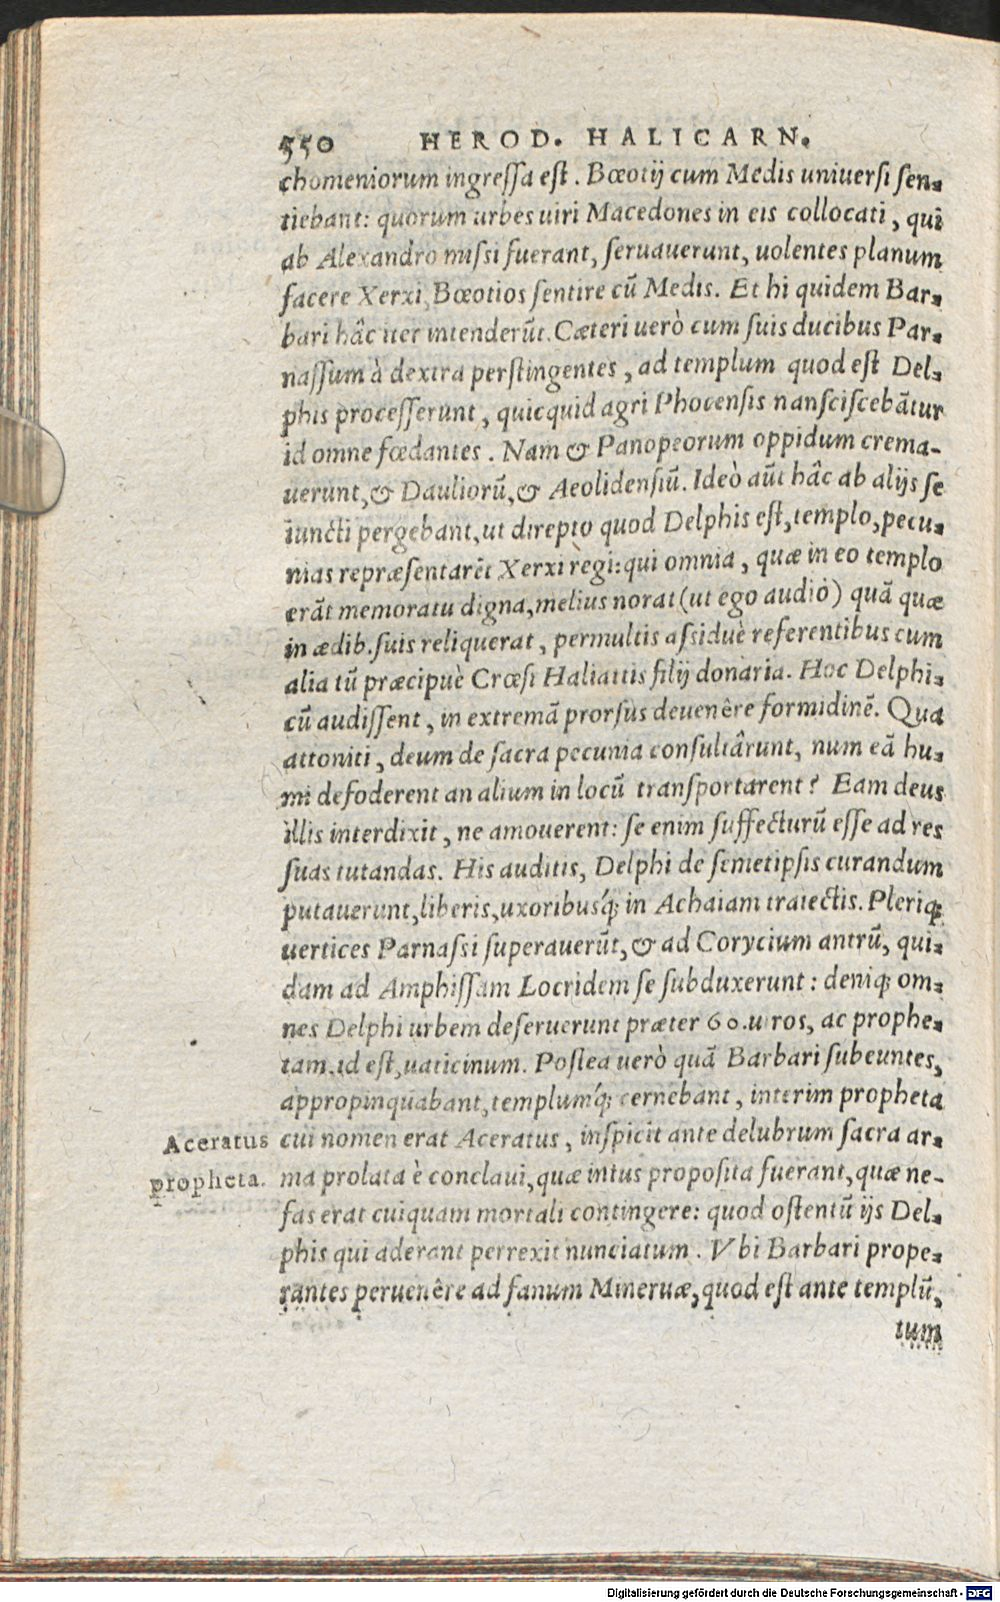 550 HEROD. HALICARN.
chomeniorum ingressa est. Bœotij cum Medis uniuersi sen-
tiebant: quorum urbes uiri Macedones in eis collocati, qui
ab Alexandro missi fuerant, seruauerunt, uolentes planum
facere Xerxi, Bœotios sentire cũ Medis. Et hi quidem Bar-
bari hâc iter intenderũt. Cæteri uerò cum suis ducibus Par-
nassum à dextra perstingentes, ad templum quod est Del-
phis processerunt, quicquid agri Phocensis nanscisceбãtur
id omne fœdantes. Nam & Panopeorum oppidum crema-
uerunt, & Dauliorũ, & Aeolidensiũ. Ideò aũt hâc ab alijs se
iuncti pergebant, ut direpto quod Delphis est, templo, pecu-
nias repræsentarẽt Xerxi regi: qui omnia, quæ in eo templo
erãt memoratu digna, melius norat (ut ego audio) quã quæ
in ædib. suis reliquerat, permultis assiduè referentibus cum
alia tũ præcipuè Crœsi Haliattis filij donaria. Hoc Delphi-
cũ audissent, in extremã prorsus deuenêre formidinẽ. Qua
attoniti, deum de sacra pecunia consultârunt, num eã hu-
mi defoderent an alium in locũ transportarent? Eam deus
illis interdixit, ne amouerent: se enim suffecturũ esse ad res
suas tutandas. His auditis, Delphi de semetipsis curandum
putauerunt, liberis, uxoribusq́; in Achaiam traiectis. Pleriq;
uertices Parnassi superauerũt, & ad Corycium antrũ, qui-
dam ad Amphissam Locridem se subduxerunt: deniq; om-
nes Delphi urbem deseruerunt præter 60. uiros, ac prophe-
tam. id est, uaticinum. Postea uerò quã Barbari subeuntes,
appropinquabant, templumq́; cernebant, interim propheta
Aceratus cui nomen erat Aceratus, inspicit ante delubrum sacra ar-
propheta. ma prolata è conclaui, quæ intus proposita fuerant, quæ ne-
fas erat cuiquam mortali contingere: quod ostentũ ijs Del-
phis qui aderant perrexit nunciatum. Vbi Barbari prope-
rantes peruenêre ad fanum Mineruæ, quod est ante templũ,
tum
Digitalisierung gefördert durch die Deutsche Forschungsgemeinschaft - DFG